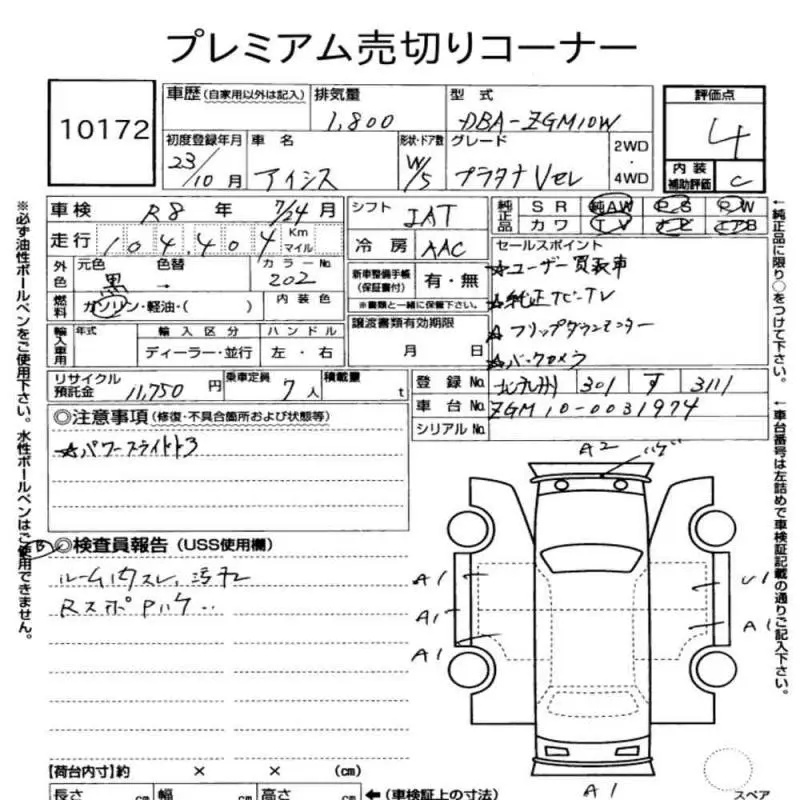 プレミアム売切りコーナー
10172
車歴 (自家用以外は記入) 排気量 型式
1,800 DBA-ZGM10W
評価点
4
内装補助評価 C
初度登録年月 車名 形状・ドア数 グレード 2WD・4WD
23/10月 アイシス W/5 プラタナVセレ
車検 R8年 7/24月 シフト IAT
純正品 SR 純AW PS PW
カワ TV ナビ エアB
走行 104,404 Km マイル
冷房 AAC
セールスポイント
外色 元色 色替 カラーNo
黒 → 202
新車整備手帳(保証書付) 有・無
※書類と一緒に保管下さい。
☆ユーザー買取車
☆純正ナビTV
☆フリップダウンモニター
☆バックカメラ
燃料 ガソリン・軽油・( ) 内装色
輸入車用 年式 輸入区分 ハンドル
ディーラー・並行 左・右
譲渡書類有効期限
月 日
リサイクル預託金 11,750円 乗車定員 7人 積載量 t
登録No. 北九州 301 す 3111
車台No. ZGM10-0031974
シリアルNo.
◎注意事項 (修復・不具合箇所および状態等)
☆パワースライド
◎検査員報告 (USS使用欄)
ルーム内スレ、汚れ
Rスポ Pハゲ
A2 ハゲ
A1
A1
A1
U1
A1
A1
【荷台内寸】約 × × (cm)
長さ cm 幅 cm 高さ cm ←(車検証上の寸法)
スペア
※必ず油性ボールペンをご使用下さい。水性ボールペンはご使用できません。
←純正品に限り○をつけて下さい。
←車台番号は左詰めで車検証記載の通りご記入下さい。